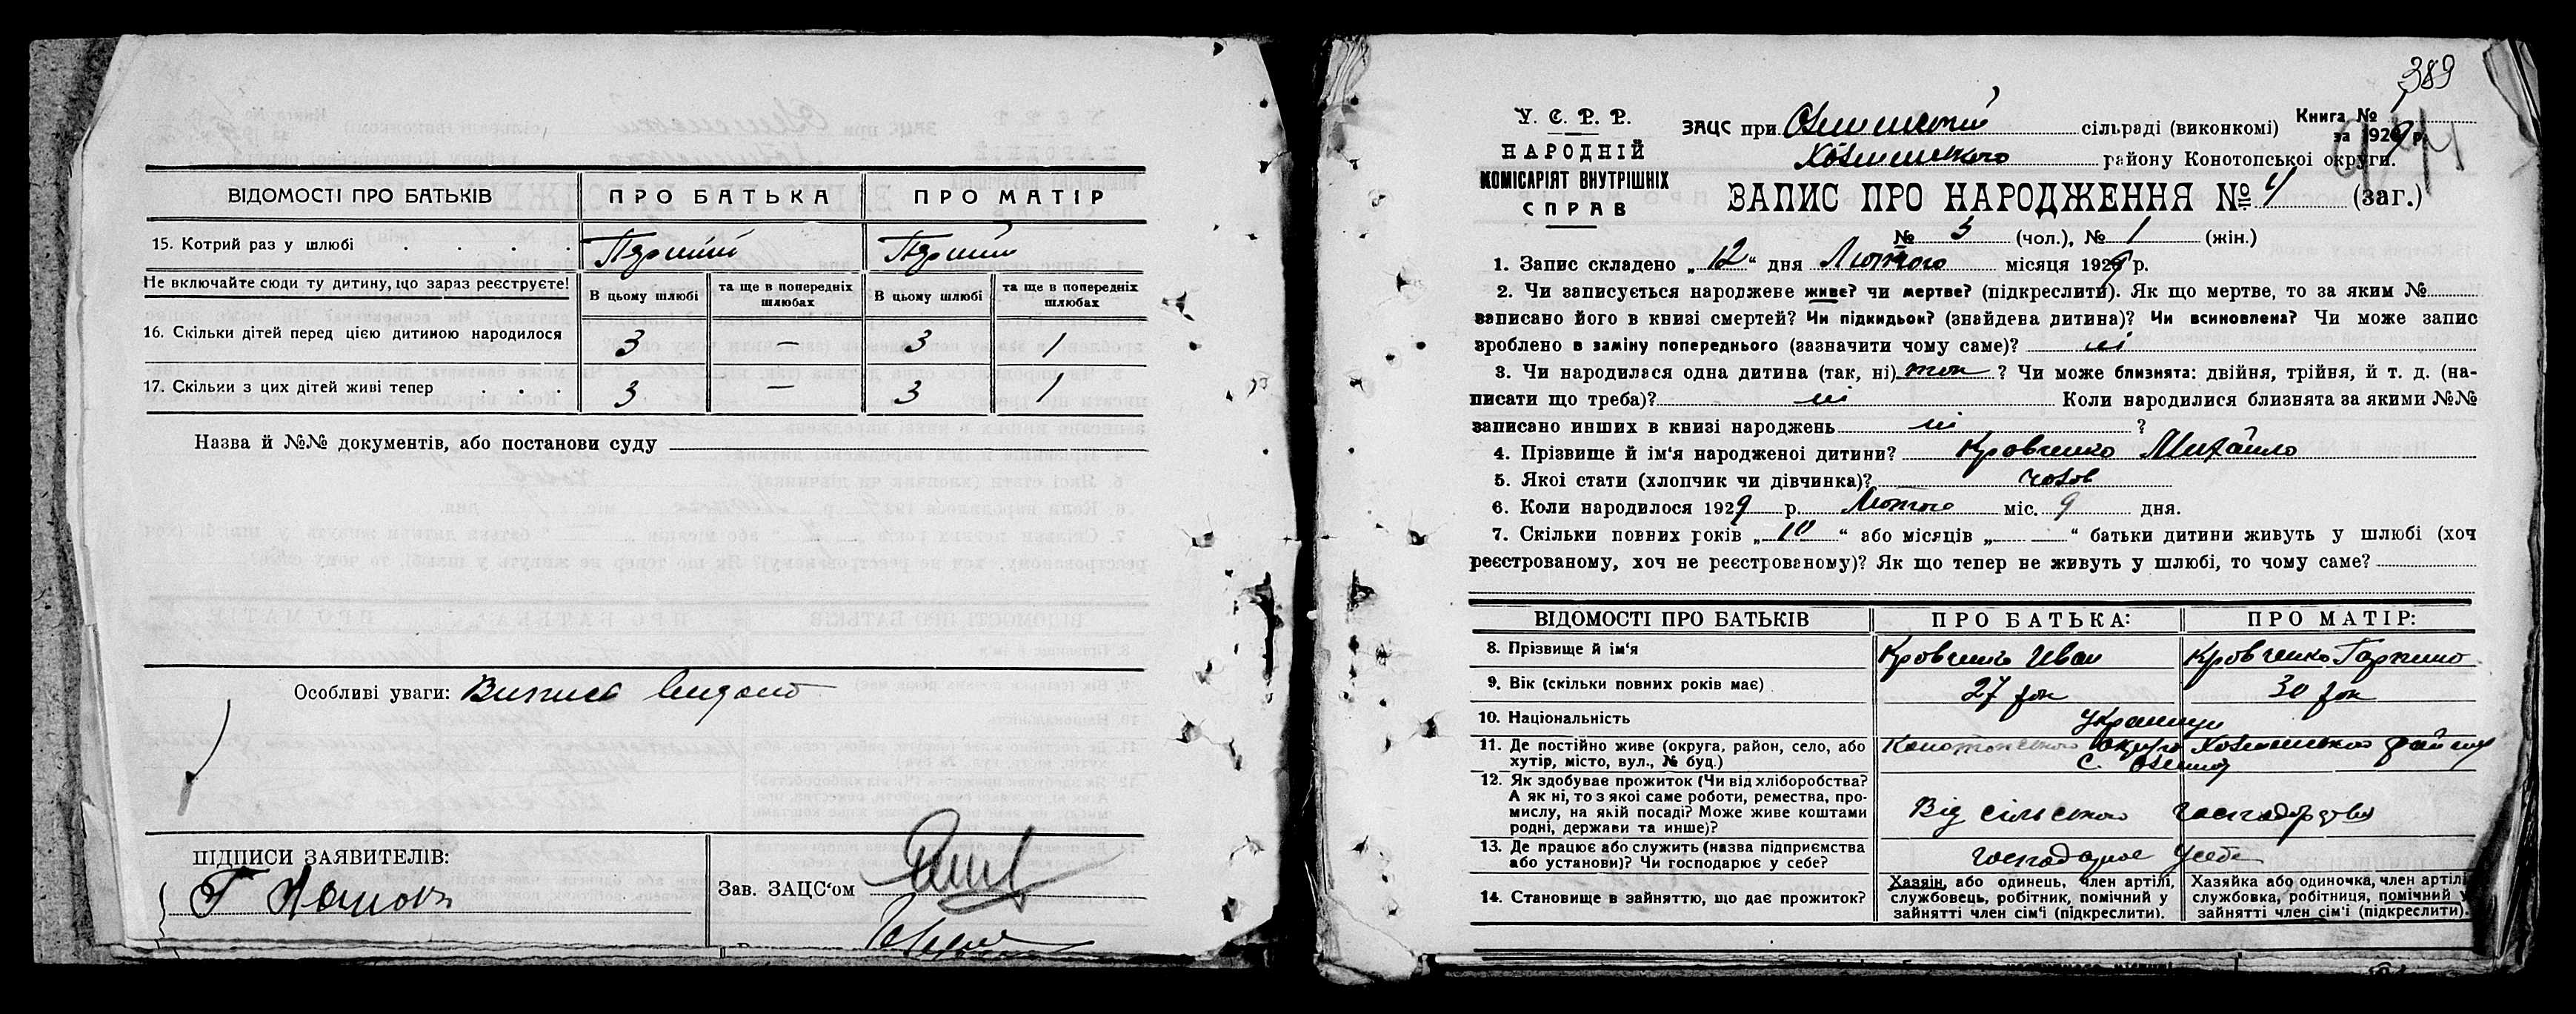 ВІДОМОСТІ ПРО БАТЬКІВ ПРО БАТЬКА ПРО МАТІР
15. Котрий раз у шлюбі . . . . Перший Перший
Не включайте сюди ту дитину, що зараз реєструєте! В цьому шлюбі та ще в попередніх шлюбах В цьому шлюбі та ще в попередніх шлюбах
16. Скільки дітей перед цією дитиною народилося 3 — 3 1
17. Скільки з цих дітей живі тепер . . . 3 — 3 1
Назва й №№ документів, або постанови суду
Особливі уваги: Випись видано
ПІДПИСИ ЗАЯВИТЕЛІВ:
Зав. ЗАЦС'ом
389
У. С. Р. Р.
НАРОДНІЙ
КОМІСАРІЯТ ВНУТРІШНІХ
СПРАВ
ЗАЦС при сільраді (виконкомі)
Книга № 1
за 1929 р.
району Конотопської округи.
ЗАПИС ПРО НАРОДЖЕННЯ № 4 (заг.)
№ 3 (чол.), № 1 (жін.)
1. Запис складено „12" дня Лютого місяця 1929 р.
2. Чи записується народжене живе? чи мертве? (підкреслити). Як що мертве, то за яким №
записано його в книзі смертей? Чи підкидьок? (знайдена дитина)? Чи всиновлена? Чи може запис
зроблено в заміну попереднього (зазначити чому саме)? ні
3. Чи народилася одна дитина (так, ні) так ? Чи може близнята: двійня, трійня, й т. д. (на-
писати що треба)? ні Коли народилися близнята за якими №№
записано инших в книзі народжень ні ?
4. Прізвище й ім'я народженоі дитини? Кровченко Михайло
5. Якоі стати (хлопчик чи дівчинка)? чолов
6. Коли народилося 1929 р. Лютого міс. 9 дня.
7. Скільки повних років „10" або місяців „ — " батьки дитини живуть у шлюбі (хоч
реєстрованому, хоч не реєстрованому)? Як що тепер не живуть у шлюбі, то чому саме?
ВІДОМОСТІ ПРО БАТЬКІВ ПРО БАТЬКА: ПРО МАТІР:
8. Прізвище й ім'я Кровченко Иван Кровченко
9. Вік (скільки повних років має) 27 рок 30 рок
10. Національність Українці
11. Де постійно живе (округа, район, село, або
хутір, місто, вул., № буд.) Конотопського округу району
с.
12. Як здобуває прожиток (Чи від хліборобства?
А як ні, то з якоі саме роботи, ремества, про-
мислу, на якій посаді? Може живе коштами
родні, держави та инше)? Від сільського господарства
13. Де працює або служить (назва підприємства
або установи)? Чи господарює у себе? господарює у себе
14. Становище в зайняттю, що дає прожиток?
Хазяін, або одинець, член артілі,
службовець, робітник, помічний у
зайнятті член сім'ї (підкреслити).
Хазяйка або одиночка, член артілі
службовка, робітниця, помічний у
зайнятті член сім'ї (підкреслити).